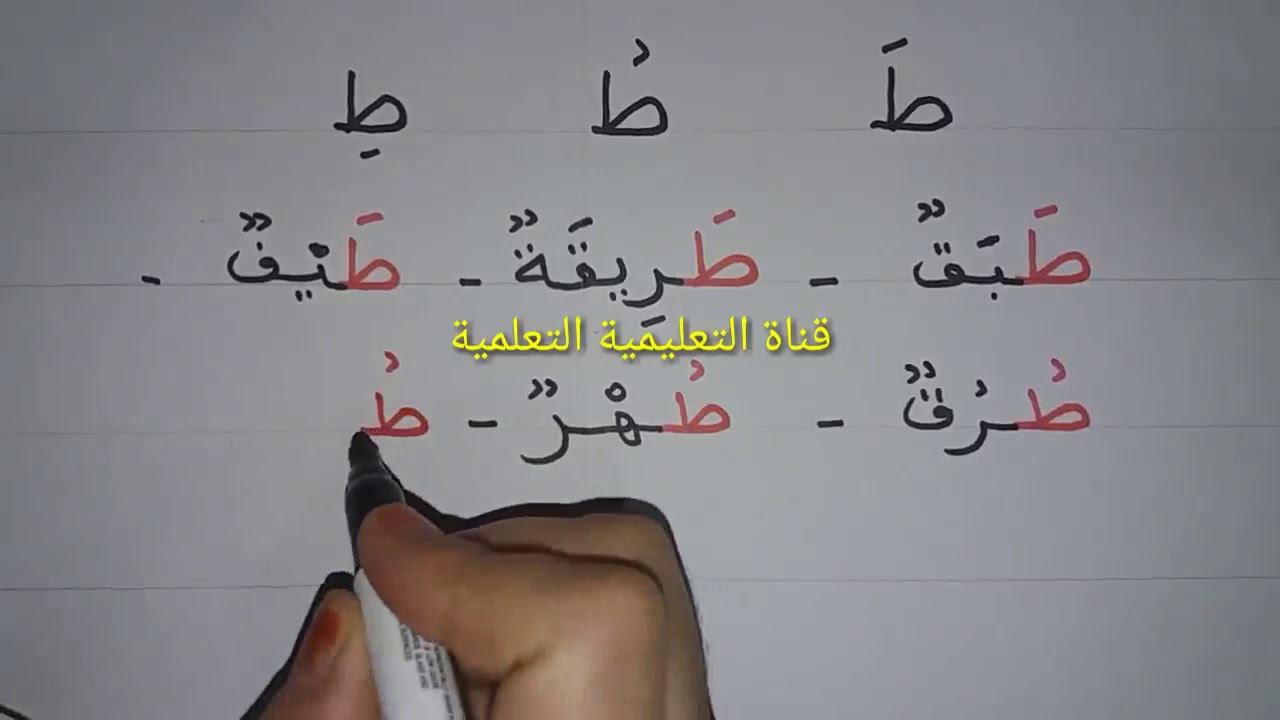 طَ طُ طِ
طَبَقٌ - طَرِيقَةٌ - طَيْفٌ -
قناة التعليمية التعلمية
طُرُقٌ - طُهْرٌ - طُ